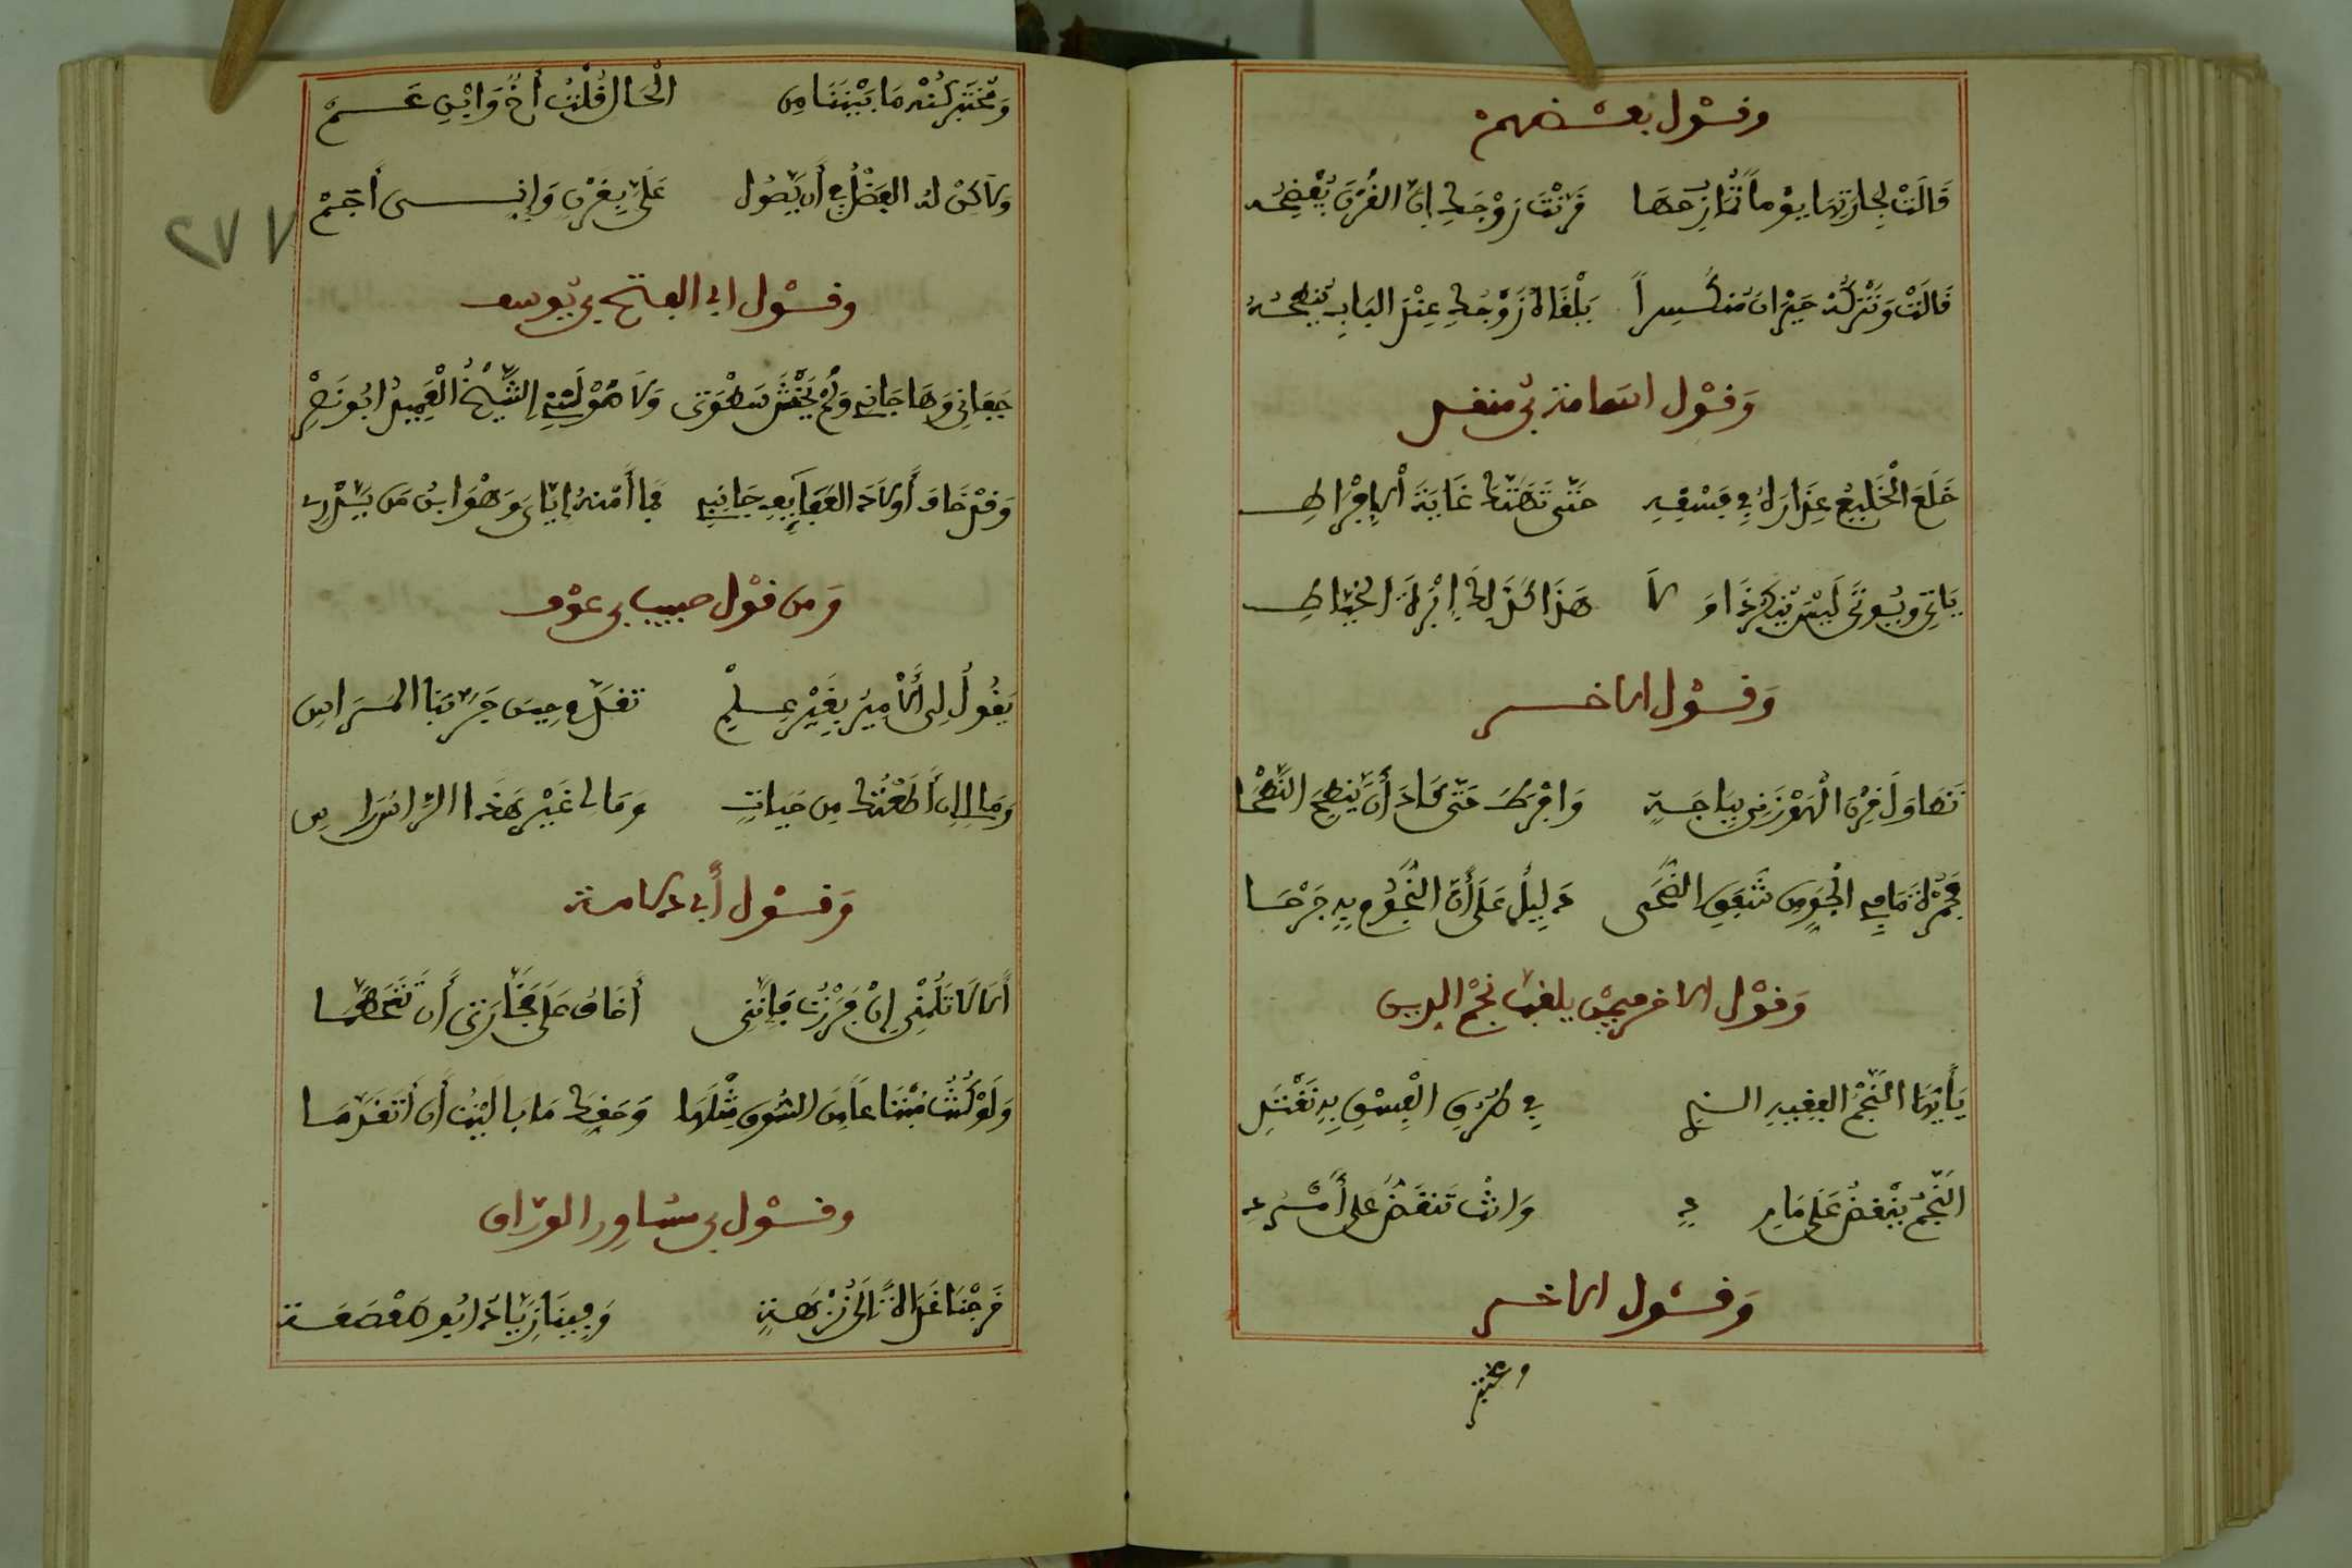 وقول بعضهم
قَالَتْ لِجَارَتِهَا يَوْماً تُمَازِحُهَا قَرَّنْتِ زَوْجَكِ إِنَّ القُرْنَ يُفْضِحُهُ
قَالَتْ وَنَتْرُكُهُ حَيْرَانَ مُنْكَسِراً يَلْقَاهُ زَوْجُكِ عِنْدَ البَابِ يَنْطِحُهُ
وَقَوْل اسامة بن منقذ
خَلَعَ الْخَلِيعُ عِذَارَهُ فِي فِسْقِهِ حَتَّى تَهَتَّكَ غَايَةَ الإِفْرَاطِ
يَاتِي وَيُوتَى لَيْسَ يُنْكِرُ ذَا وَلاَ هَذَا كَذَلِكَ إِبْرَةُ الخَيَّاطِ
وَقَوْل الاخر
تَطَاوَلَ قَرْنُ الْهَوْزَنِي بِبَاجَةٍ وَافْرَطَ حَتَّى كَادَ أَنْ يَنْطِحَ النَّطْحَا
فَحُمْرَةُ مَا فِي الْجَوِّ مِن شَفَقِ الضُّحَى دَلِيلٌ عَلَى أَنَّ النُّجُومَ بِهِ جَرْحَا
وَقَوْل الاخر فيمن يلقب نجم الدين
يَأَيُّهَا النَّجْمُ الفَقِيهِ الذي فِي طُرُقِ الْفِسْقِ بِهِ نَقْتَدِي
النَّجْمُ يَنْقَضُّ عَلَى مَارِدٍ وَانْتَ تَنْقَضُّ عَلَى أَمْرَدِ
وَقَوْل الاخر
ومختبر
وَمُخْتَبِرٍ كُنْهَ مَا بَيْنَنَا مِنَ الْحَالِ قُلْتُ أَخٌ وَابْنِ عَمْ
وَلاَكِنْ لَهُ الفَضْلُ فِي أَن يَصُولَ عَلَيَّ بِقَرْنٍ وَإِنِّي أَجَمْ
وقول ابي الفتح بن يوسف
جَفَانِي وَهَا جَانِيهِ وَلَمْ يَخْشَ سَطْوَتِي وَلاَ هَوَّلَتْهُ الشَّيْخُ الْعَمِيدُ ابُو نَصْرِ
وَقَدْ خَافَ أَوْلاَدَ القَفَا فِي جَانِبِهِ فَمَا أَمْنُهُ إِيَّايَ وَهْوَ ابْنُ مَن يَدْرِي
وَمن قول حبيب بن عوف
يَقُولُ لِي الأَمِيرُ بِغَيْرِ عِلْمٍ تَقَدَّمْ حِينَ جَرَّ بِنَا المَرَاسِ
وَمَا لِي إِنْ أَطَعْتُكَ مِن حَيَاةٍ وَمَا لِي غَيْرَ هَذَا الرَّاسِ رَاسِ
وَقَوْل أبي دلامة
أَلاَ لاَ تَلُمْنِي إِنْ فَرَرْتُ فَإِنَّنِي أَخَافُ عَلَى فَخَّارَتِي أَن تَحَطَّمَا
وَلَوْ كُنْتُ مُبْتَاعاً مِنَ السُّوقِ مِثْلَهَا وَحَقِّكَ مَا بَالَيْتُ أَن أَتَقَدَّمَا
وقول بن مساور الورّاق
خَرَجْنَا غَدَاةً إِلَى نُزْهَةٍ وَفِينَا زِيَادٌ ابُو صَعْصَعَة
٢٧٧